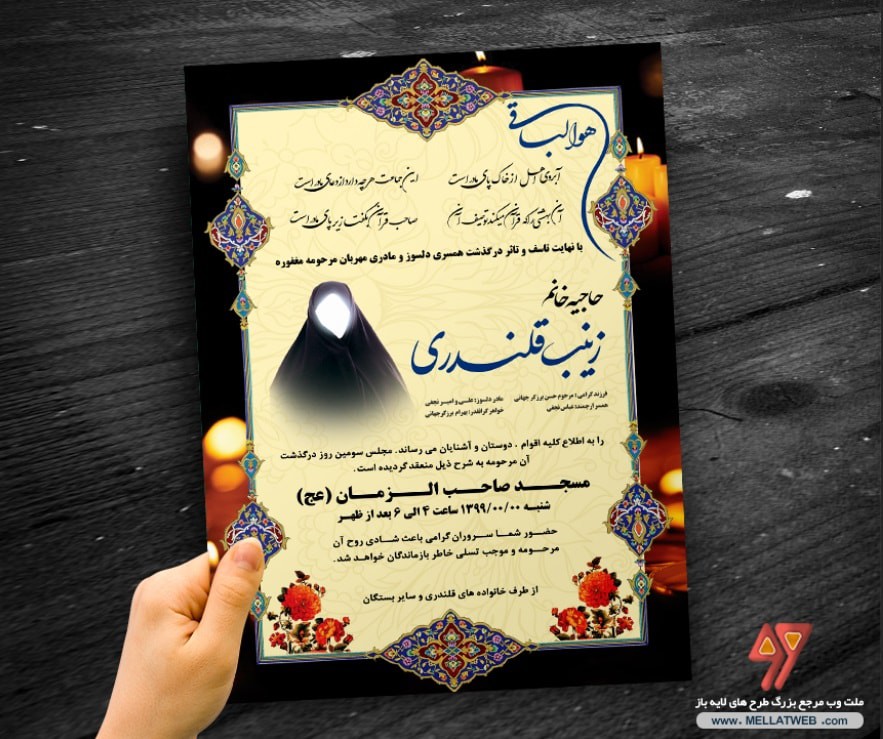 هوالباقی
آبروی اهل دل از خاک پای مادر است
این جماعت هرچه دارد از دعای مادر است
آن بهشتی را که قرآن میکند توصیف آن
صاحب قرآن بگفتا زیر پای مادر است
با نهایت تاسف و تاثر درگذشت همسری دلسوز و مادری مهربان مرحومه مغفوره
حاجیه خانم
زینب قلندری
فرزند گرامی: مرحوم حسن برزگر جهانی
مادر دلسوز: علی و امیر نجفی
همسر ارجمند: عباس نجفی
خواهر گرانقدر: بهرام برزگر جهانی
را به اطلاع کلیه اقوام ، دوستان و آشنایان می رساند. مجلس سومین روز درگذشت
آن مرحومه به شرح ذیل منعقد گردیده است.
مسجد صاحب الزمان (عج)
شنبه ۱۳۹۹/۰۰/۰۰ ساعت ۴ الی ۶ بعد از ظهر
حضور شما سروران گرامی باعث شادی روح آن
مرحومه و موجب تسلی خاطر بازماندگان خواهد شد.
از طرف خانواده های قلندری و سایر بستگان
ملت وب مرجع بزرگ طرح های لایه باز
www. MELLATWEB .com